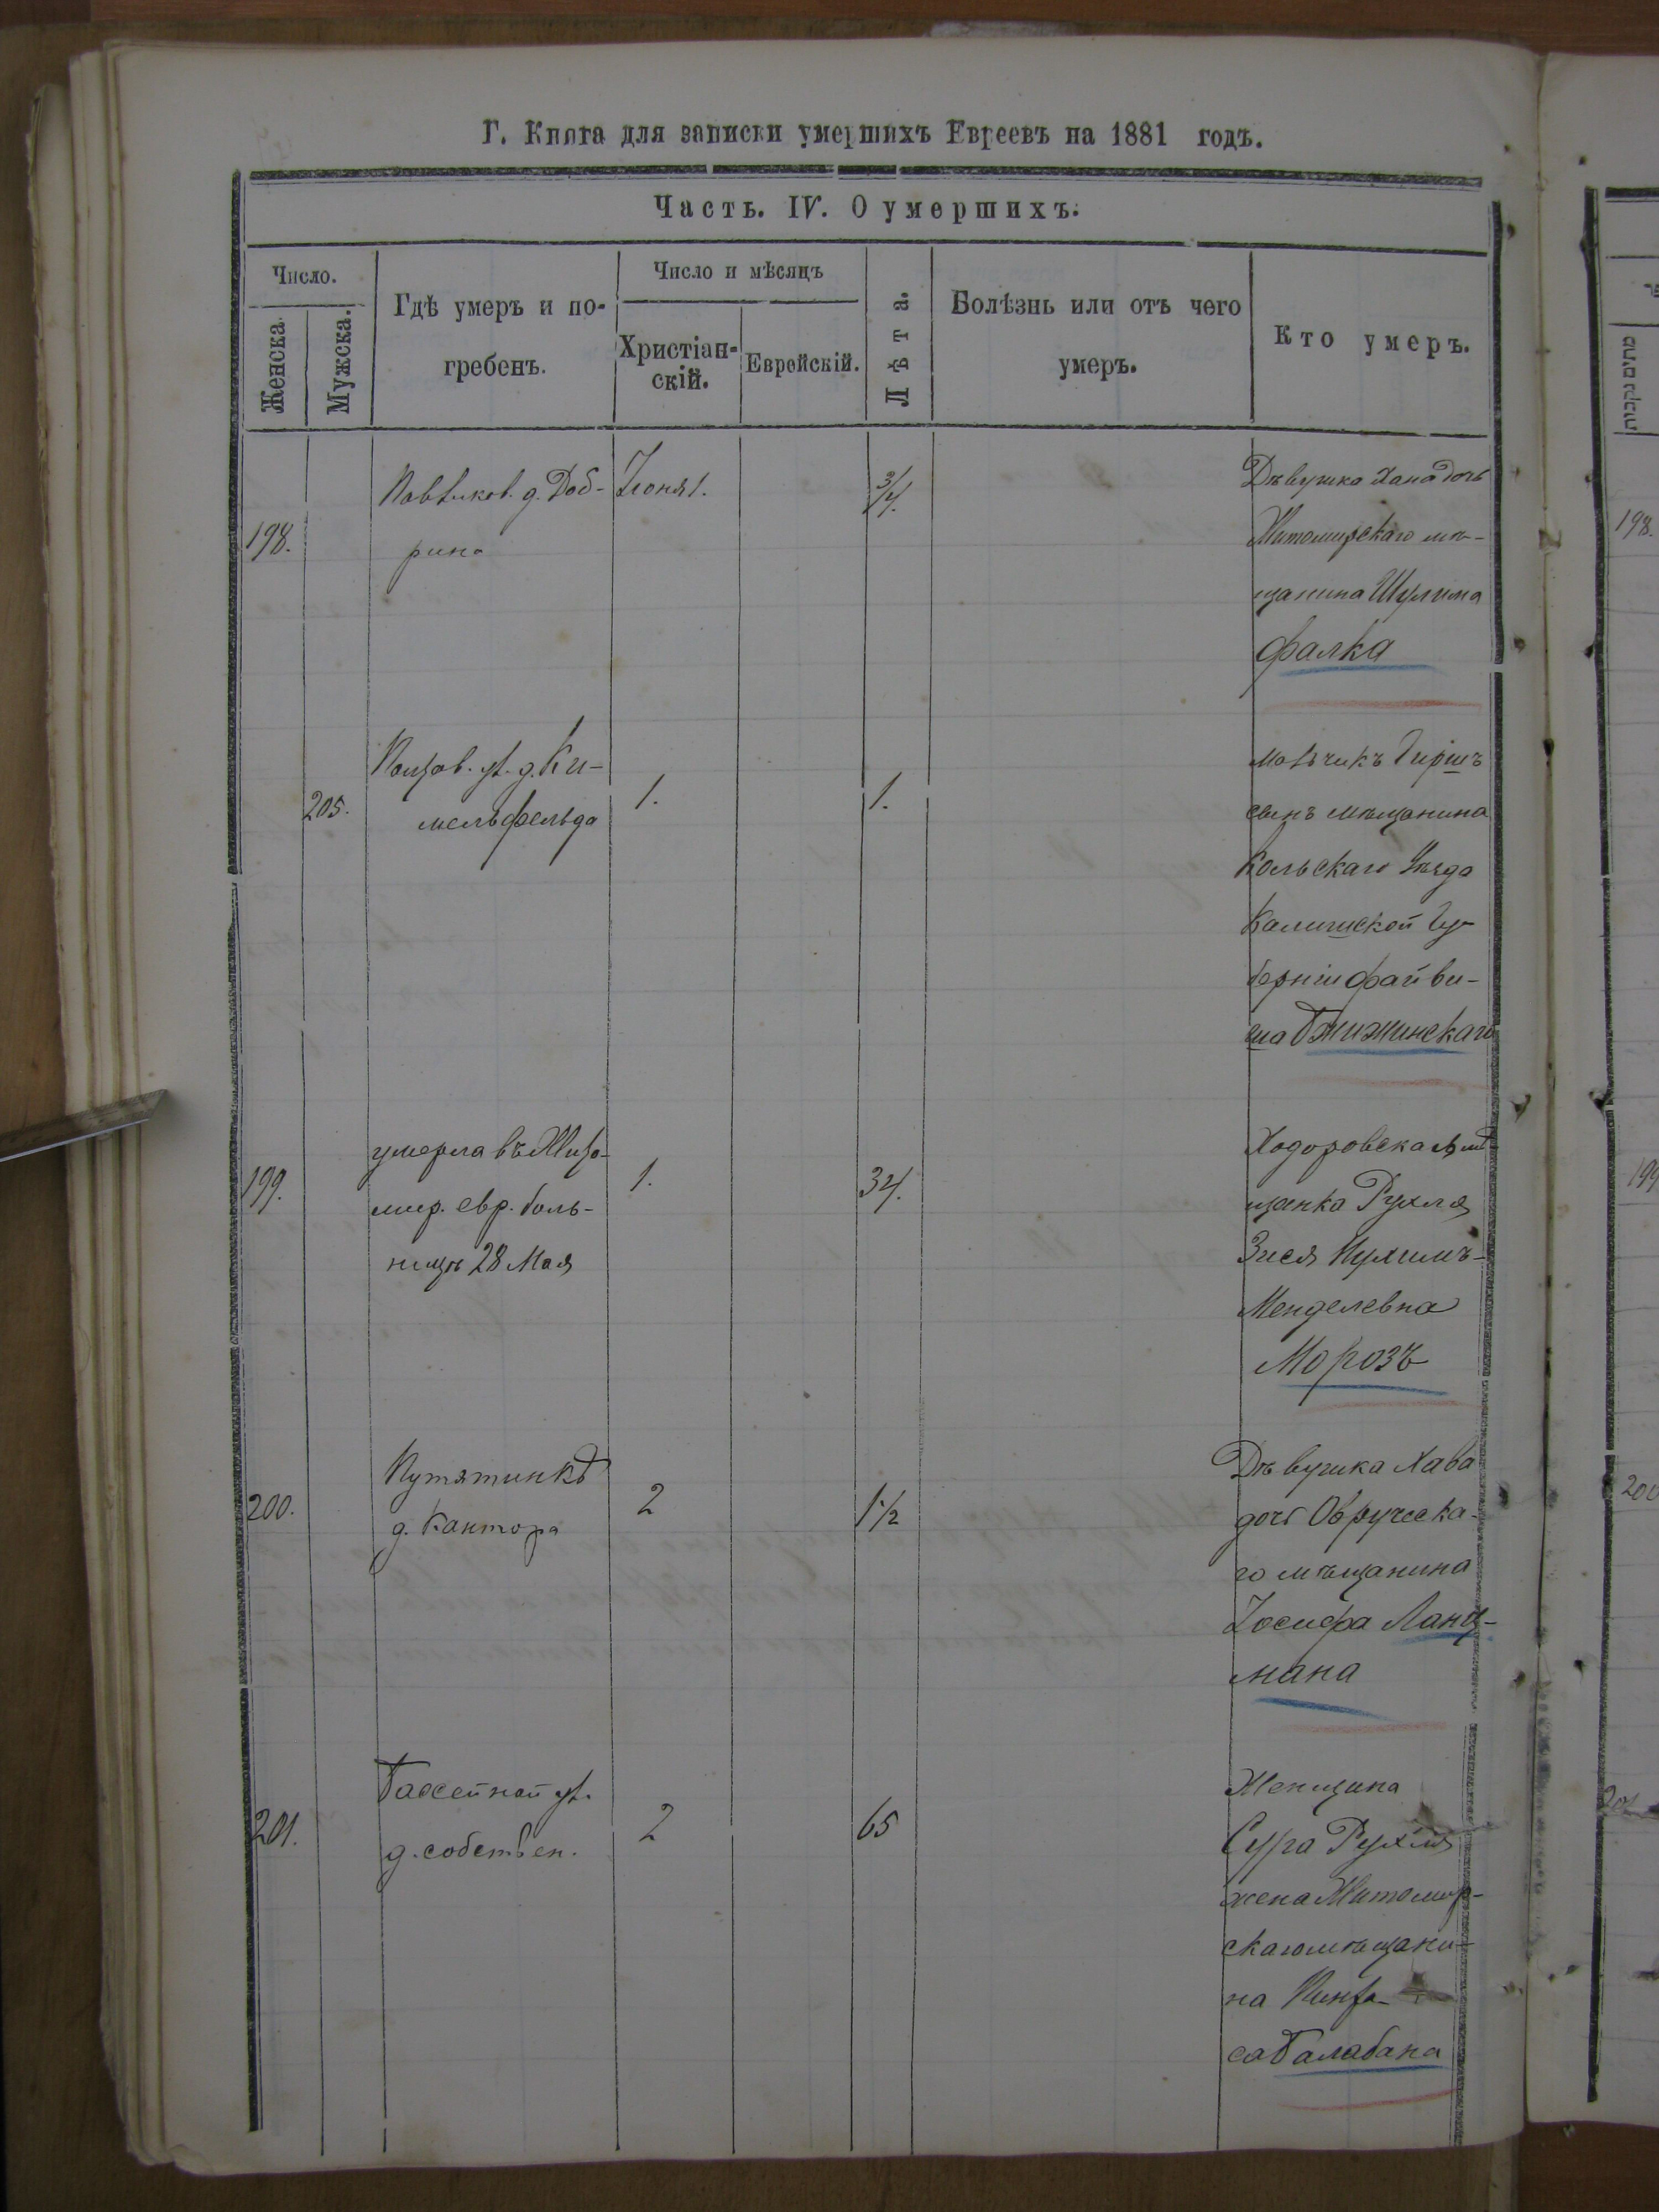 Г. Книга для записки умершихъ Евреевъ на 1881 годъ.
Часть. IV. О умершихъ.
Число.
Женска.
Мужска.
Гдѣ умеръ и по-
гребенъ.
Число и мѣсяцъ
Христіан-
скій.
Еврейскій.
Лѣта.
Болѣзнь или отъ чего
умеръ.
Кто умеръ.
198.
д. Доб-
рина
Іюня 1.
3/4.
Дѣвушка Хана дочь
Житомирскаго мѣ-
щанина Шулима
Фалка
205.
ул. д. Ки-
мельфельда
1.
1.
мальчикъ Гиршъ
сынъ мѣщанина
Кольскаго Уѣзда
Калишской Гу-
берніи Файви-
ша Бжижинскаго
199.
умерла въ Жито-
мир. евр. боль-
ницѣ 28 Мая
1.
34.
Ходоровская мѣ
щанка Рухля
Зися Нухимъ-
Менделевна
Морозъ
200.
Путятинкѣ
д. Кантора
2
1 1/2
Дѣвушка Хава
дочь Овручска-
го мѣщанина
Іосифа Ланц-
мана
201.
Бассейной ул.
д. собствен.
2
65
Женщина
Сура Рухля
жена Житомир-
скаго мѣщани-
на Пинха-
са Балабана
198.
199
200
201